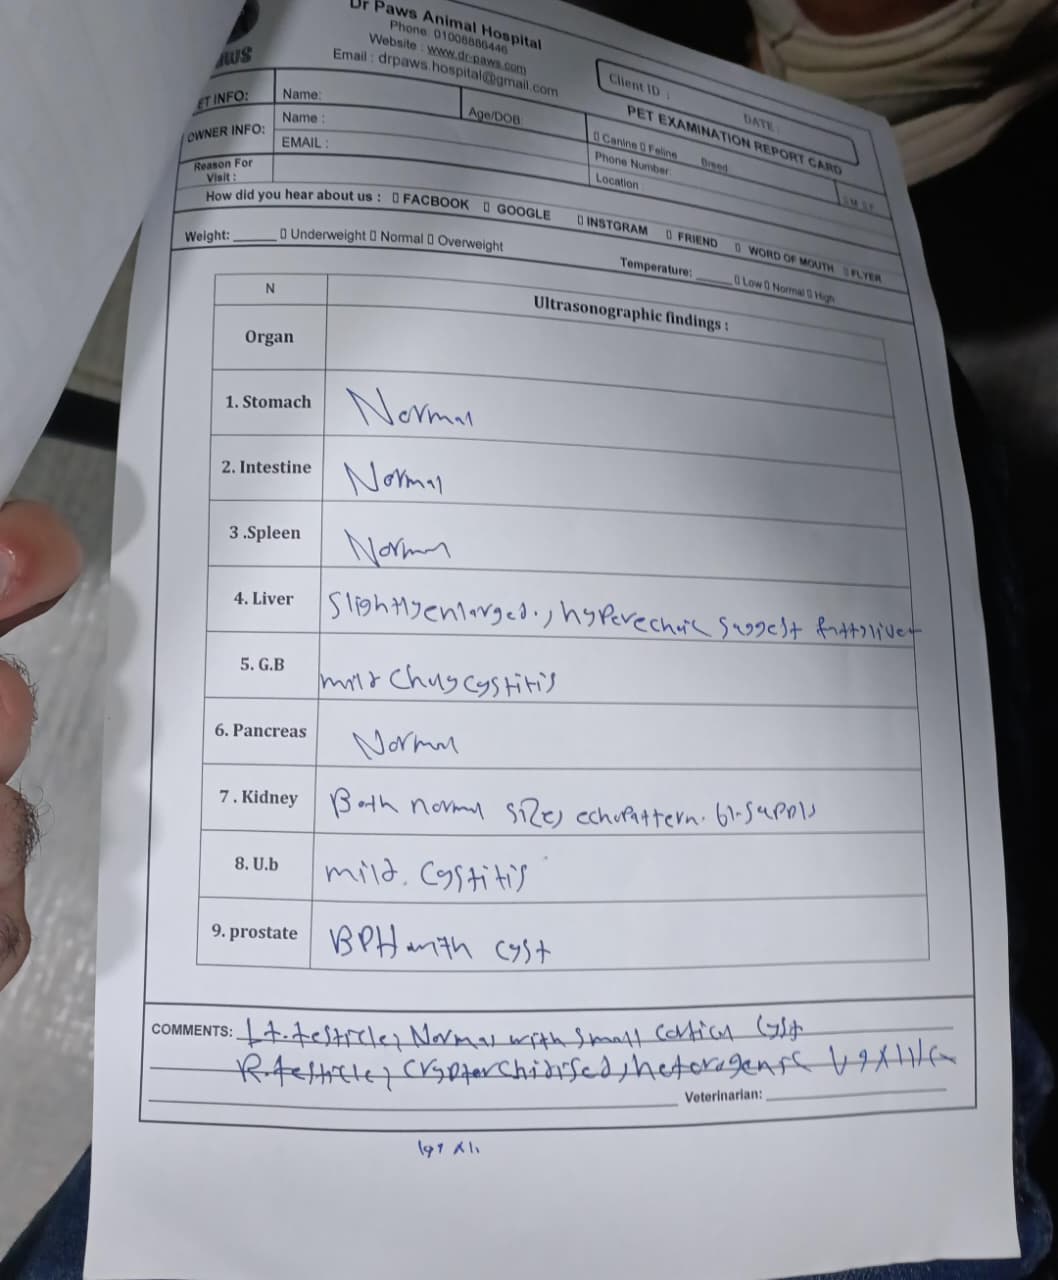 Dr Paws Animal Hospital
Phone: 01008886446
Website : www.dr-paws.com
Email : drpaws.hospital@gmail.com
Client ID :
DATE :
PET EXAMINATION REPORT CARD
ET INFO:
Name:
Age/DOB
▯ Canine ▯ Feline Breed
OWNER INFO:
Name :
Phone Number:
EMAIL :
Location
Reason For
Visit :
How did you hear about us : ▯ FACBOOK ▯ GOOGLE ▯ INSTGRAM ▯ FRIEND ▯ WORD OF MOUTH ▯ FLYER
Weight: ______ ▯ Underweight ▯ Normal ▯ Overweight
Temperature: ______ ▯ Low ▯ Normal ▯ High
N
Ultrasonographic findings :
Organ
1. Stomach Normal
2. Intestine Normal
3 .Spleen Normal
4. Liver Slightly enlarged., hyperechoic suggest fatty liver
5. G.B mild
6. Pancreas Normal
7 . Kidney Both normal size, echopattern. bl. supply
8. U.b mild. Cystitis
9. prostate BPH with cyst
COMMENTS: Lt. testicle, Normal with small cortical Cyst
R. testicle,
Veterinarian: